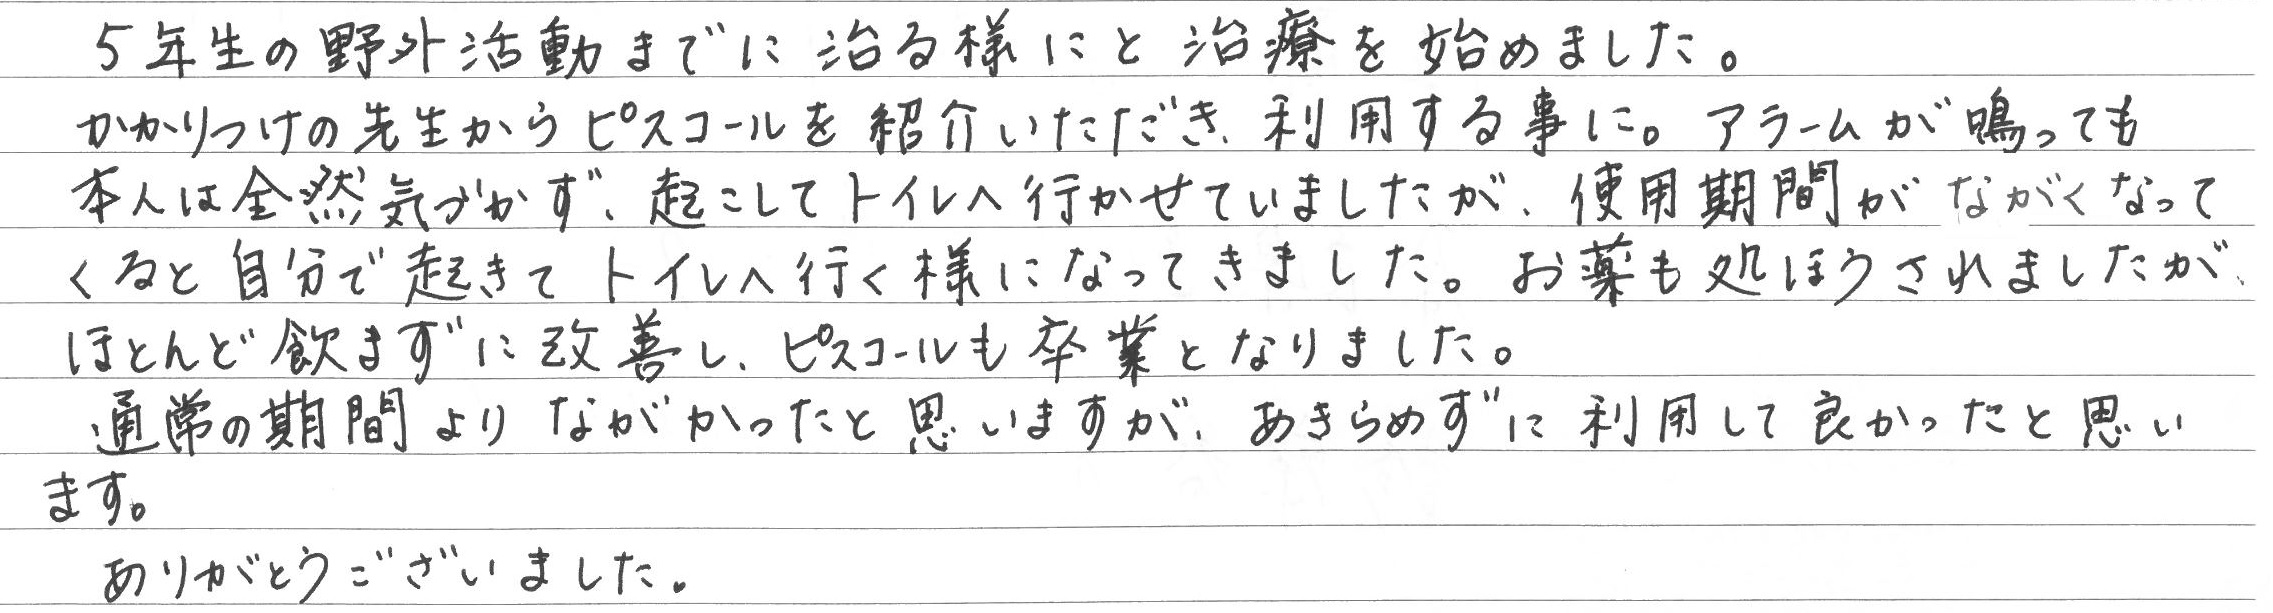 5年生の野外活動までに治る様にと治療を始めました。
かかりつけの先生からピスコールを紹介いただき、利用する事に。アラームが鳴っても
本人は全然気づかず、起こしてトイレへ行かせていましたが、使用期間がながくなって
くると自分で起きてトイレへ行く様になってきました。お薬も処ほうされましたが、
ほとんど飲まずに改善し、ピスコールも卒業となりました。
通常の期間よりながかったと思いますが、あきらめずに利用して良かったと思い
ます。
ありがとうございました。